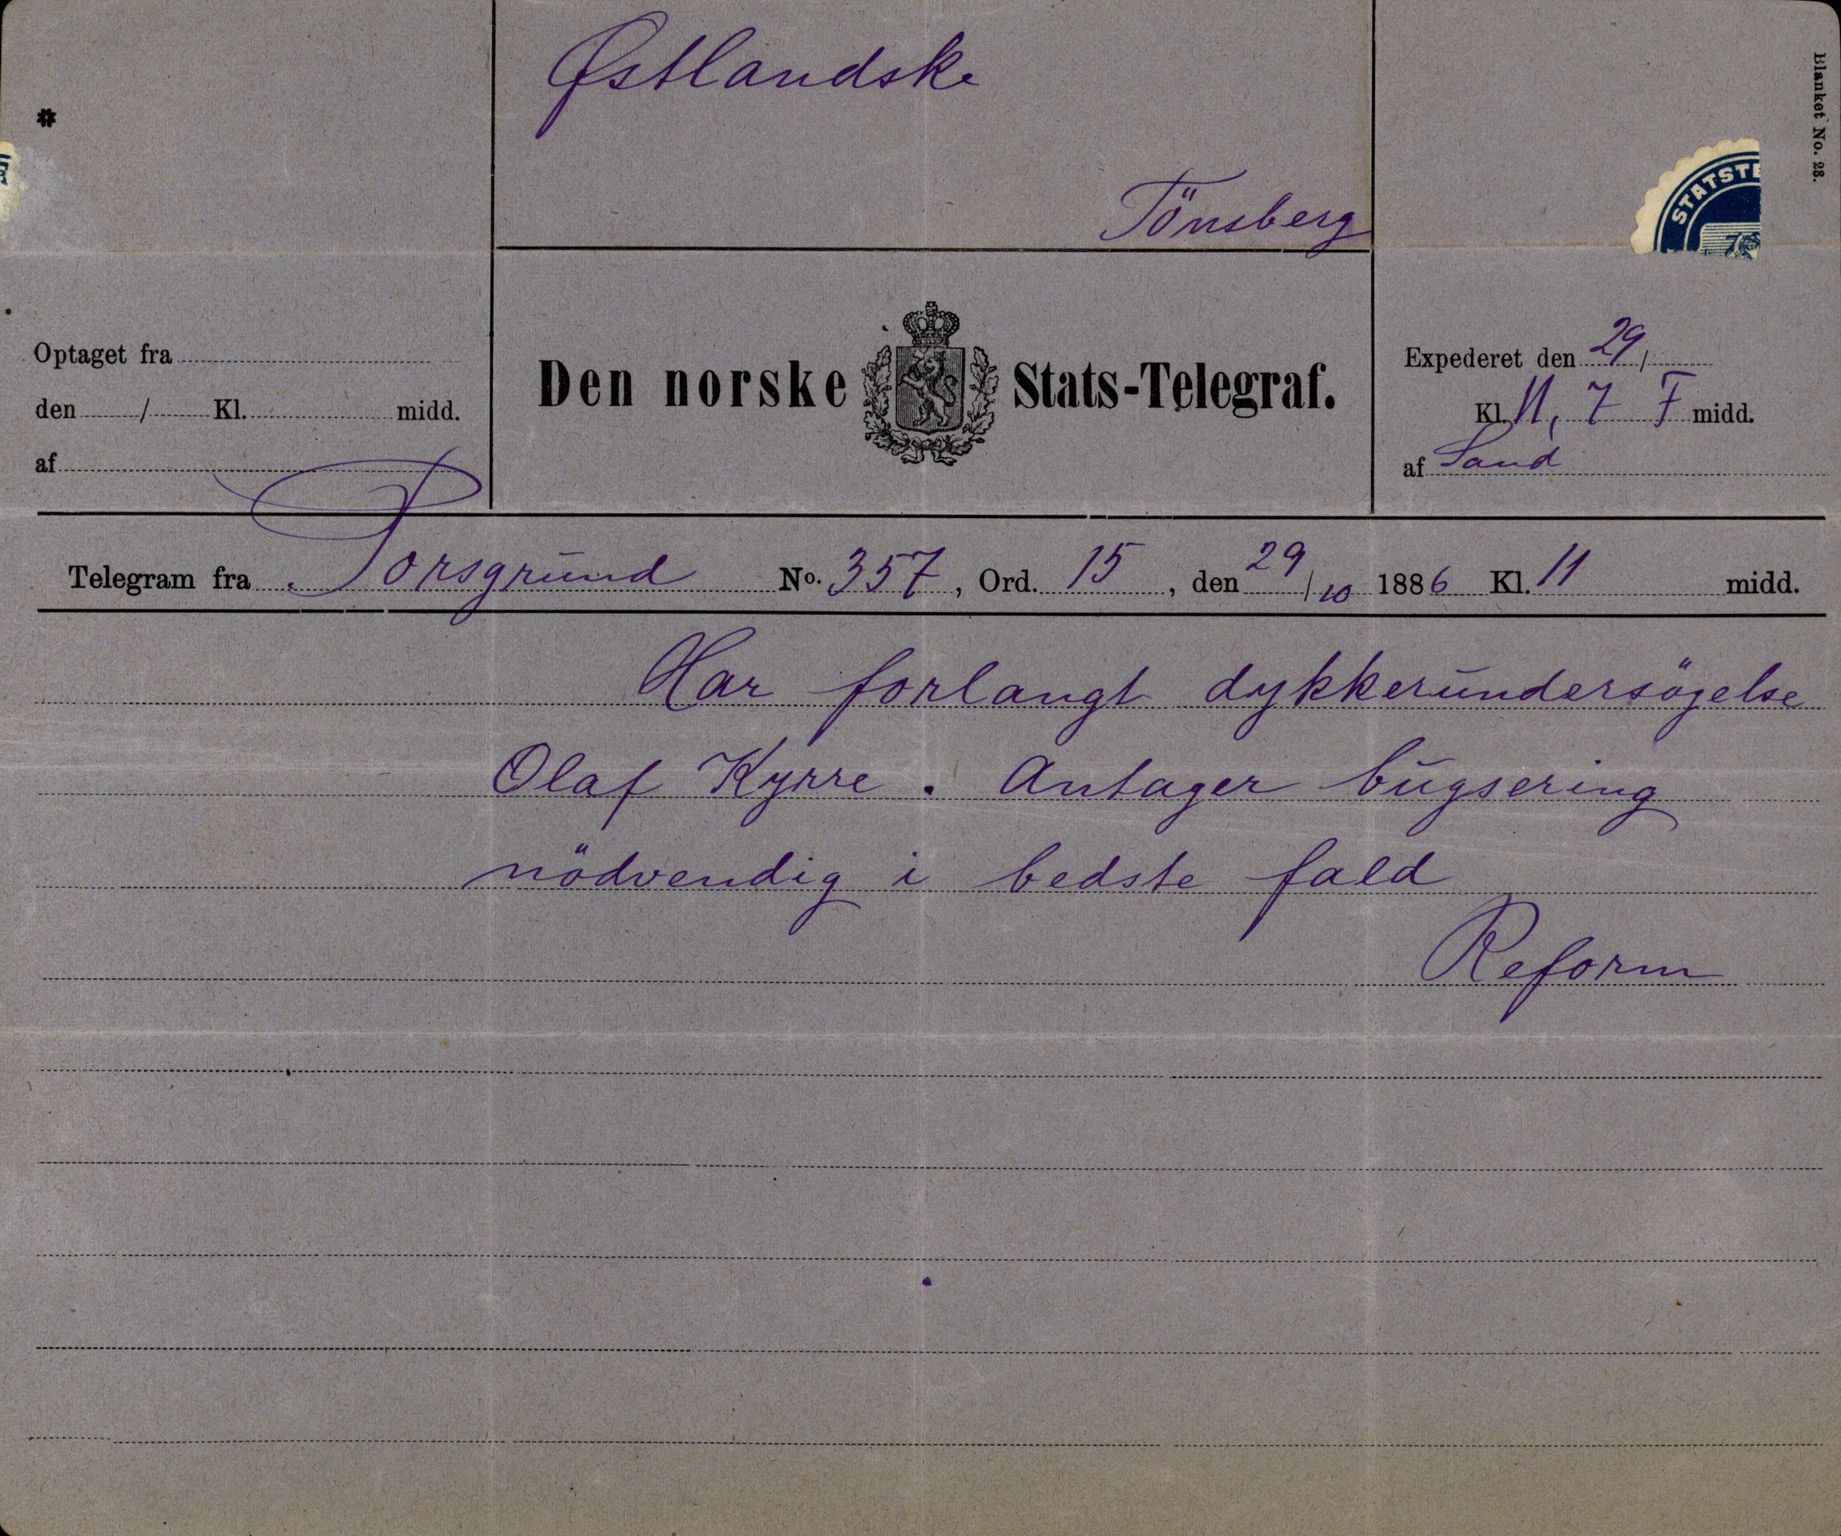 Østlandske
Tönsberg
Blanket No. 28.
STATSTE
Optaget fra
den / Kl. midd.
af
Den norske Stats-Telegraf.
Expederet den 29/
Kl. 11,7 F midd.
af Sand
Telegram fra Porsgrund No. 357, Ord. 15, den 29/10 1886 Kl. 11 midd.
Har forlangt dykkerundersögelse
Olaf Kyrre. Antager bugsering
nödvendig i bedste fald
Reform